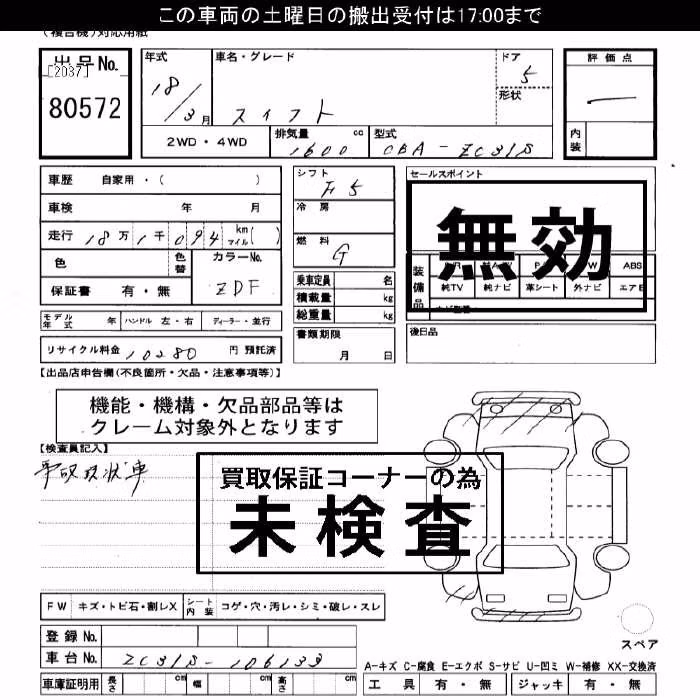 この車両の土曜日の搬出受付は17:00まで
(複合機)対応用紙
出品No.
[2037]
80572
年式
18/3月
車名・グレード
スイフト
ドア
5
形状
評価点
内装
2WD・4WD
排気量
1600 cc
型式
CBA-ZC31S
車歴 自家用・( )
車検 年 月
走行 18万1千094 km マイル( )
色
色替
カラーNo.
ZDF
保証書 有・無
シフト
F5
冷房
燃料
G
乗車定員 名
積載量 kg
総重量 kg
書類期限
月 日
セールスポイント
無効
装備品
ABS
純TV 純ナビ 革シート 外ナビ エアB
後日品
モデル年式 年 ハンドル 左・右 ディーラー・並行
リサイクル料金 10280 円 預託済
【出品店申告欄(不良箇所・欠品・注意事項等)】
機能・機構・欠品部品等は
クレーム対象外となります
【検査員記入】
事故現状車
買取保証コーナーの為
未検査
FW キズ・トビ石・割レX シート内装 コゲ・穴・汚レ・シミ・破レ・スレ
登録No.
車台No. ZC31S-106133
車庫証明用 長さ cm 幅 cm 高さ cm
スペア
A-キズ C-腐食 E-エクボ S-サビ U-凹ミ W-補修 XX-交換済
工具 有・無 ジャッキ 有・無